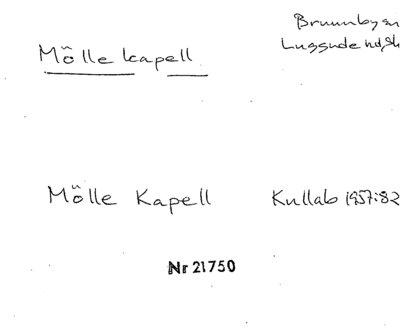 Mölle kapell
Brunnby sn
Luggude hd, Sk
Mölle Kapell
Kullab 1957:82
Nr 21750